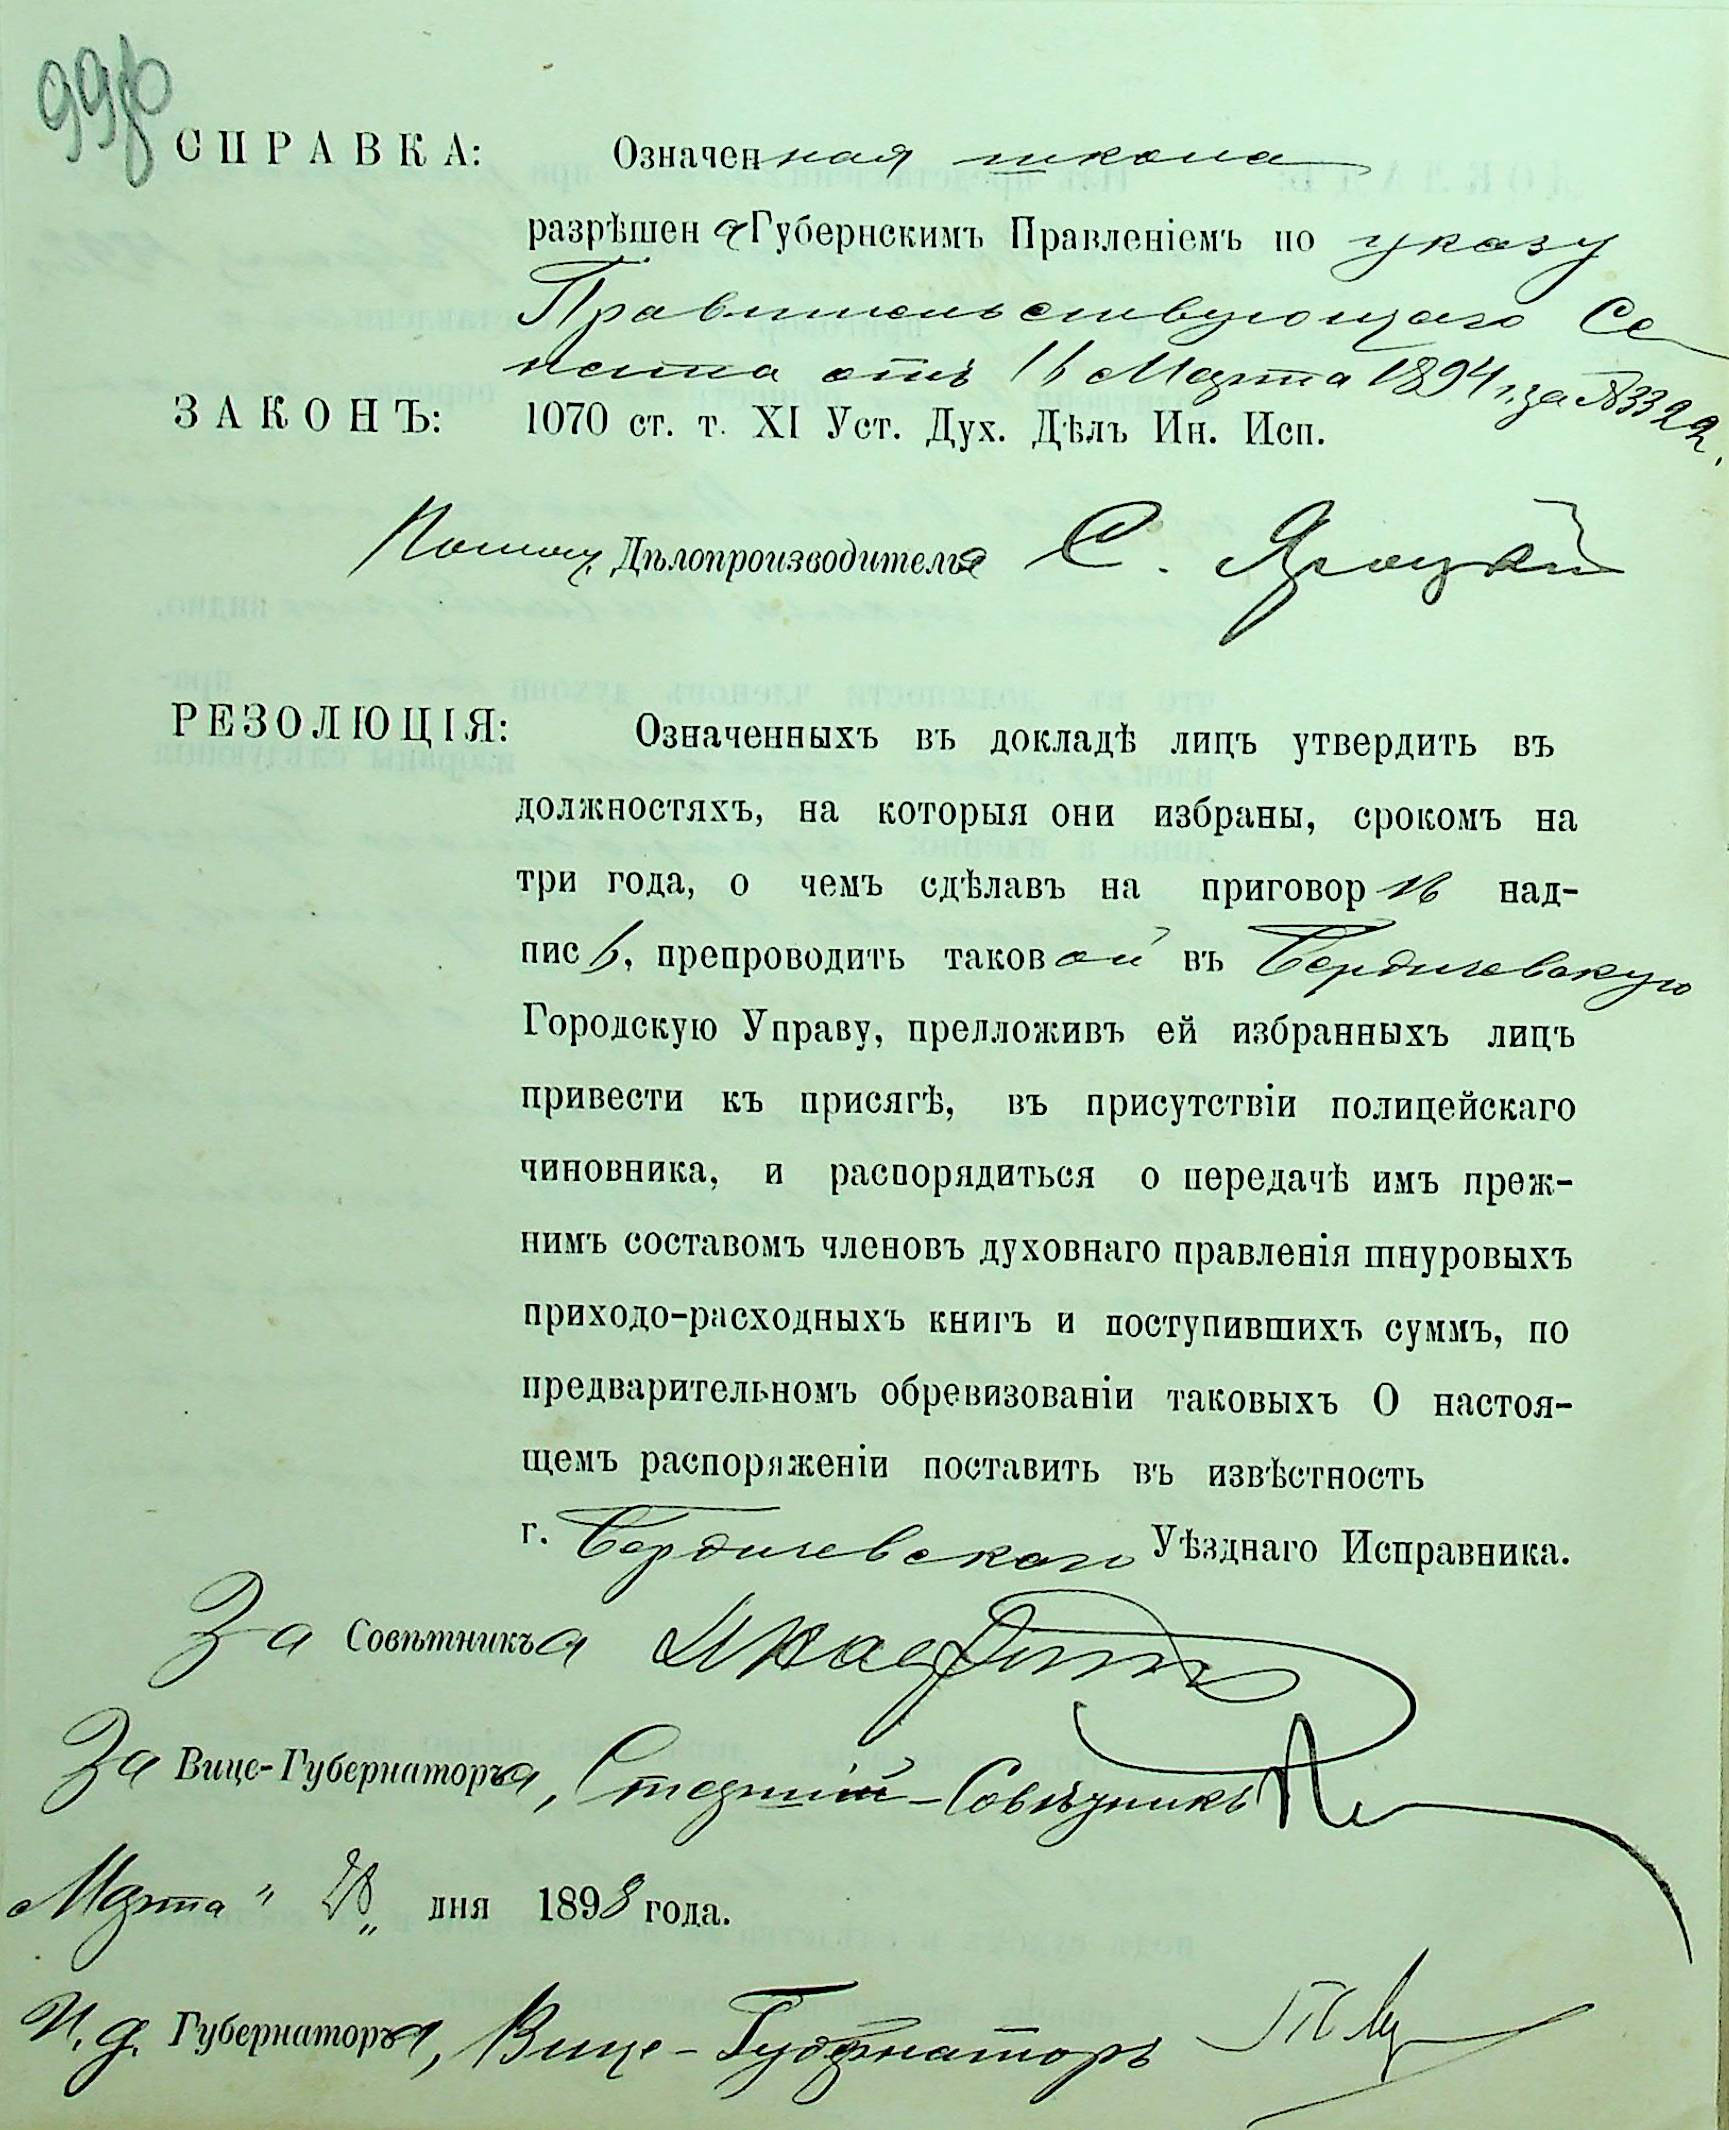 99
СПРАВКА: Означенная школа
разрѣшена Губернскимъ Правленіемъ по указу
Правительствующаго Се
ната отъ 11 Марта 1894 г. за № 3322.
ЗАКОНЪ: 1070 ст. т. XI Уст. Дух. Дѣлъ Ин. Исп.
Помощ. Дѣлопроизводителя С. Яроцкій
РЕЗОЛЮЦІЯ: Означенныхъ въ докладѣ лицъ утвердить въ
должностяхъ, на которыя они избраны, срокомъ на
три года, о чемъ сдѣлавъ на приговорѣ над-
пись, препроводить таковой въ Бердичевскую
Городскую Управу, предложивъ ей избранныхъ лицъ
привести къ присягѣ, въ присутствіи полицейскаго
чиновника, и распорядиться о передачѣ имъ преж-
нимъ составомъ членовъ духовнаго правленія шнуровыхъ
приходо-расходныхъ книгъ и поступившихъ суммъ, по
предварительномъ обревизованіи таковыхъ О настоя-
щемъ распоряженіи поставить въ извѣстность
г. Бердичевскаго Уѣзднаго Исправника.
За Совѣтника
За Вице-Губернатора, Старшій-Совѣтникъ
Марта " 28 „ дня 1898 года.
И. д. Губернатора, Вице-Губернаторъ